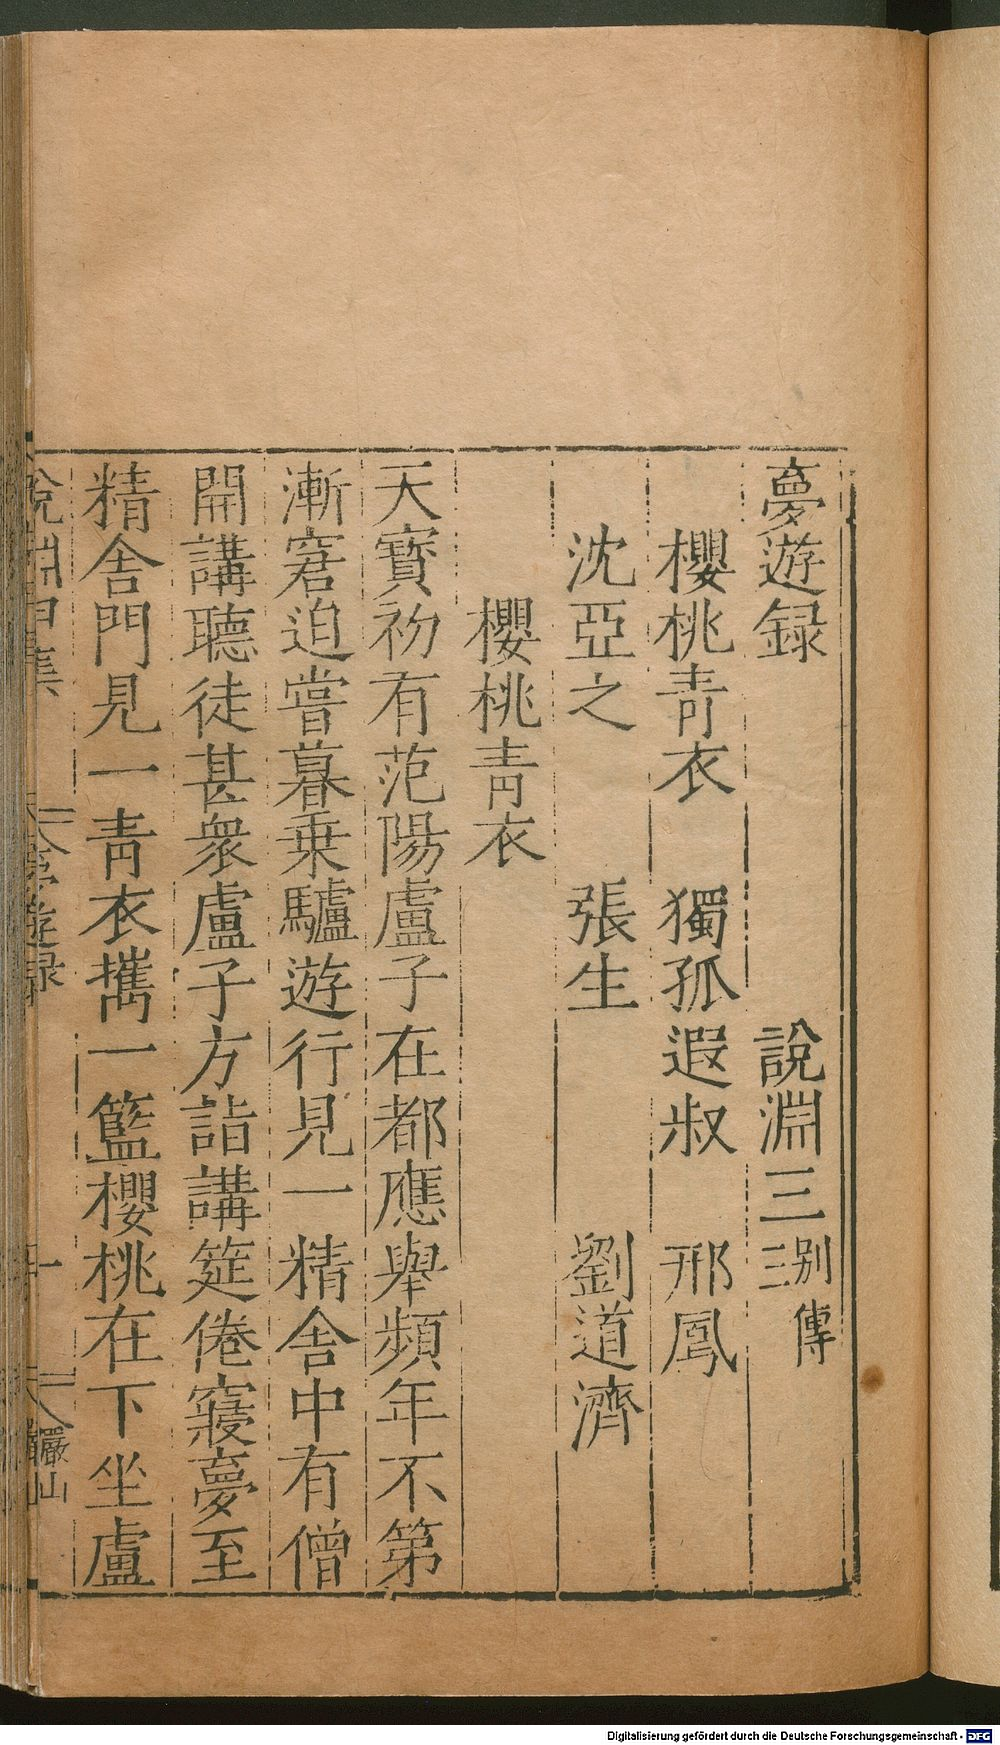 夢遊録　說淵三　別傳三
櫻桃青衣　獨孤遐叔　邢鳳
沈亞之　張生　劉道濟
櫻桃靑衣
天寳初有范陽盧子在都應舉頻年不第
漸窘迫嘗暮乗驢遊行見一精舎中有僧
開講聽徒甚衆盧子方詣講筵倦寢夢至
精舎門見一靑衣攜一籃櫻桃在下坐盧
說淵 集　夢遊録　一　儼山
Digitalisierung gefördert durch die Deutsche Forschungsgemeinschaft - DFG